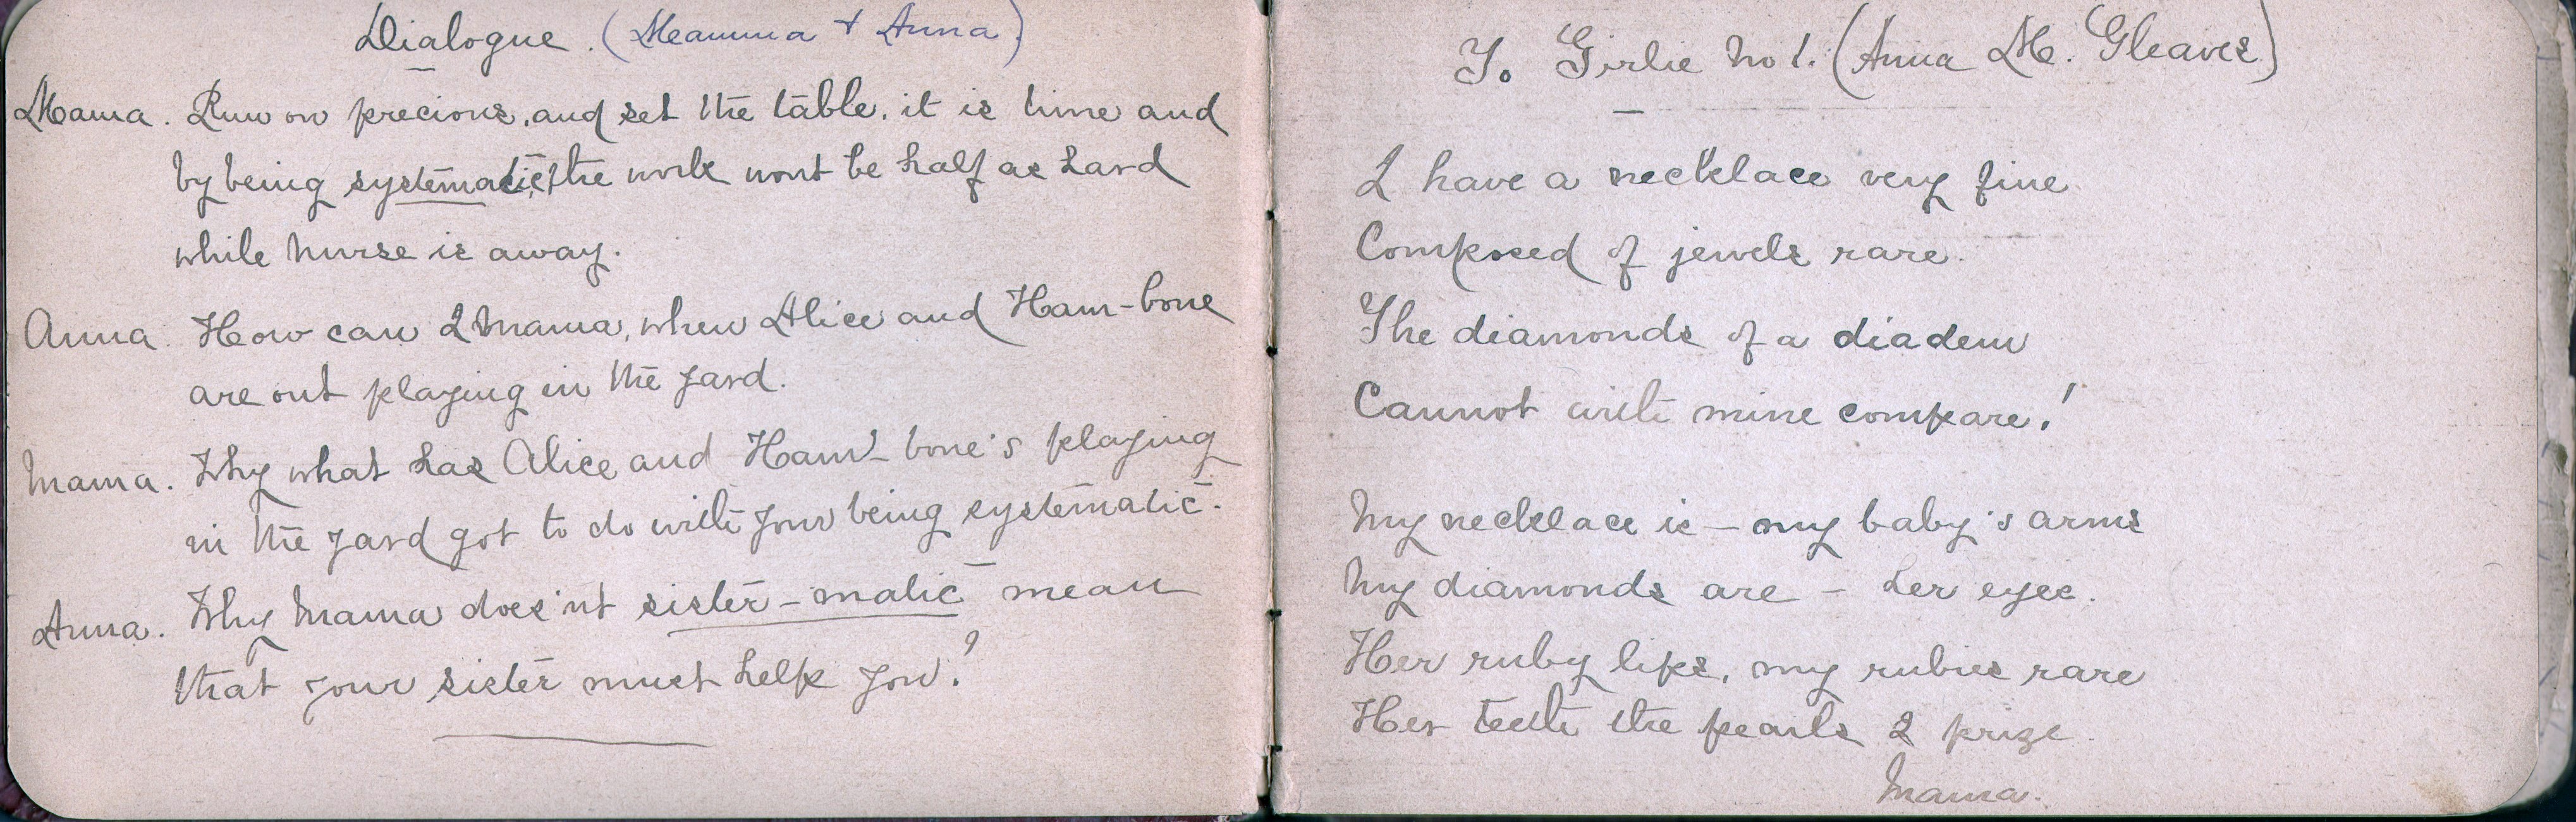 Dialogue. (Mamma + Anna.)
Mama. Run on precious, and set the table, it is time and
by being systematic, the work wont be half as hard
while nurse is away.
Anna. How can I Mama, when Alice and Ham-bone
are out playing in the yard.
Mama. Why what has Alice and Ham-bone's playing
in the yard got to do with your being systematic.
Anna. Why Mama does'nt sister-matic mean
that your sister must help you?
To Girlie No 1. (Anna M. Gleaves)
I have a necklace very fine
Composed of jewels rare.
The diamonds of a diadem
Cannot with mine compare!
My necklace is - my baby's arms
My diamonds are - her eyes.
Her ruby lips, my rubies rare
Her teeth the pearls I prize.
Mama.